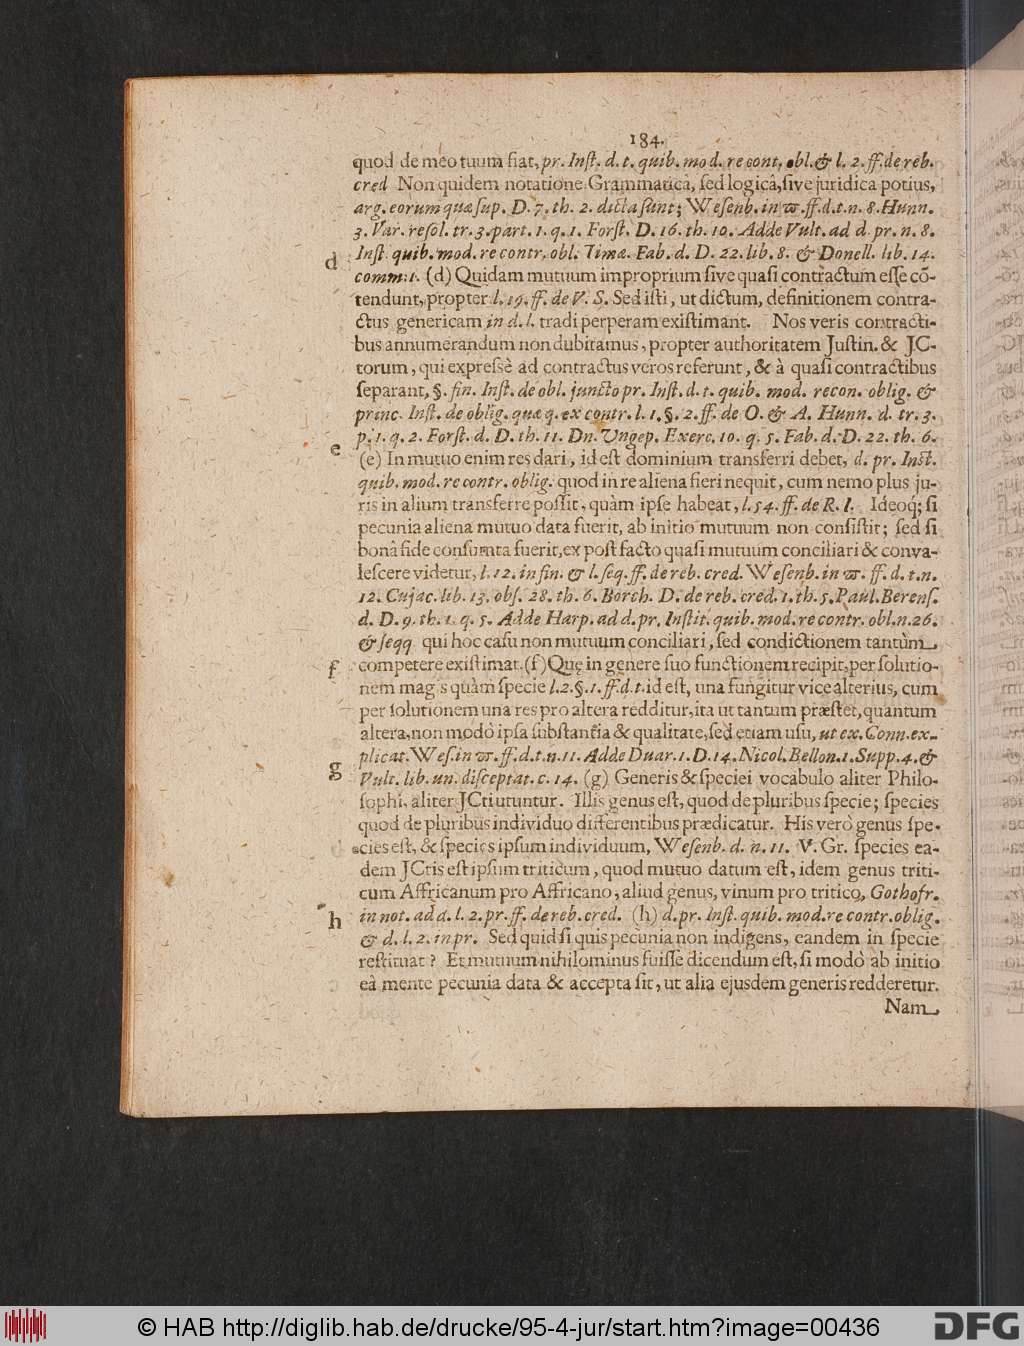 184.
quod de meo tuum fiat, pr. Inſt. d. t. quib. mod. re cont. obl. & l. 2. ff. de reb.
cred Non quidem notatione Grammaticâ, ſed logicâ, ſive juridica potius,
arg. eorum quæ ſup. D. 7. th. 2. dicta ſunt; Weſenb. in ϖ. ff. d. t. n. 8. Hunn.
3. Var. reſol. tr. 3. part. 1. q. 1. Forſt. D. 16. th. 10. Adde Vult. ad d. pr. n. 8.
Inſt. quib. mod. re contr. obl. Timæ. Fab. d. D. 22. lib. 8. & Donell. lib. 14.
d
comm. 1. (d) Quidam mutuum improprium ſive quaſi contractum eſſe cō-
tendunt, propter l. 19. ff. de V. S. Sed iſti, ut dictum, definitionem contra-
ctus genericam in d. l. tradi perperam exiſtimant. Nos veris contracti-
bus annumerandum non dubitamus, propter authoritatem Juſtin. & JC-
torum, qui expreſſè ad contractus veros referunt, & à quaſi contractibus
ſeparant, §. fin. Inſt. de obl. juncto pr. Inſt. d. t. quib. mod. re con. oblig. &
princ. Inſt. de oblig. quæ q. ex contr. l. 1. §. 2. ff. de O. & A. Hunn. d. tr. 3.
p. 1. q. 2. Forſt. d. D. th. 11. Dn. Ungep. Exerc. 10. q. 5. Fab. d. D. 22. th. 6.
e
(e) In mutuo enim res dari, id eſt dominium transferri debet, d. pr. Inſt.
quib. mod. re contr. oblig. quod in re aliena fieri nequit, cum nemo plus ju-
ris in alium transferre poſſit, quàm ipſe habeat, l. 54. ff. de R. I. Ideoq́; ſi
pecunia aliena mutuo data fuerit, ab initio mutuum non conſiſtit; ſed ſi
bonâ fide conſumta fuerit, ex poſt facto quaſi mutuum conciliari & conva-
leſcere videtur, l. 12. in fin. & l. ſeq. ff. de reb. cred. Weſenb. in ϖ. ff. d. t. n.
12. Cujac. lib. 13. obſ. 28. th. 6. Borch. D. de reb. cred. 1. th. 5. Paul. Berenſ.
d. D. 9. th. 1. q. 5. Adde Harp. ad d. pr. Inſtit. quib. mod. re contr. obl. n. 26.
& ſeqq qui hoc caſu non mutuum conciliari, ſed condictionem tantùm
f
competere exiſtimat. (f) Quę in genere ſuo functionem recipit, per ſolutio-
nem mag s quàm ſpecie l. 2. §. 1. ff. d. t. id eſt, una fungitur vice alterius, cum
per ſolutionem una res pro altera redditur, ita ut tantum præſtet, quantum
altera, non modò ipſa ſubſtantia & qualitate, ſed etiam uſu, ut ex. Conn. ex-
plicat. Weſ. in ϖ. ff. d. t. n. 11. Adde Duar. 1. D. 14. Nicol. Bellon. 1. Supp. 4. &
g
Vult. lib. un. diſceptat. c. 14. (g) Generis & ſpeciei vocabulo aliter Philo-
ſophi, aliter JCti utuntur. Illis genus eſt, quod de pluribus ſpecie; ſpecies
quod de pluribus individuo differentibus prædicatur. His verò genus ſpe-
cies eſt, & ſpecies ipſum individuum, Weſenb. d. n. 11. V. Gr. ſpecies ea-
dem JCtis eſt ipſum triticum, quod mutuo datum eſt, idem genus triti-
cum Affricanum pro Affricano, aliud genus, vinum pro tritico, Gothofr.
h
in not. ad d. l. 2. pr. ff. de reb. cred. (h) d. pr. Inſt. quib. mod. re contr. oblig.
& d. l. 2. in pr. Sed quid ſi quis pecunia non indigens, eandem in ſpecie
reſtituat? Et mutuum nihilominus fuiſſe dicendum eſt, ſi modò ab initio
eâ mente pecunia data & accepta ſit, ut alia ejusdem generis redderetur.
Nam
© HAB http://diglib.hab.de/drucke/95-4-jur/start.htm?image=00436
DFG